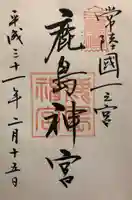 常陸國一之宮
鹿島神宮
平成三十一年二月十五日